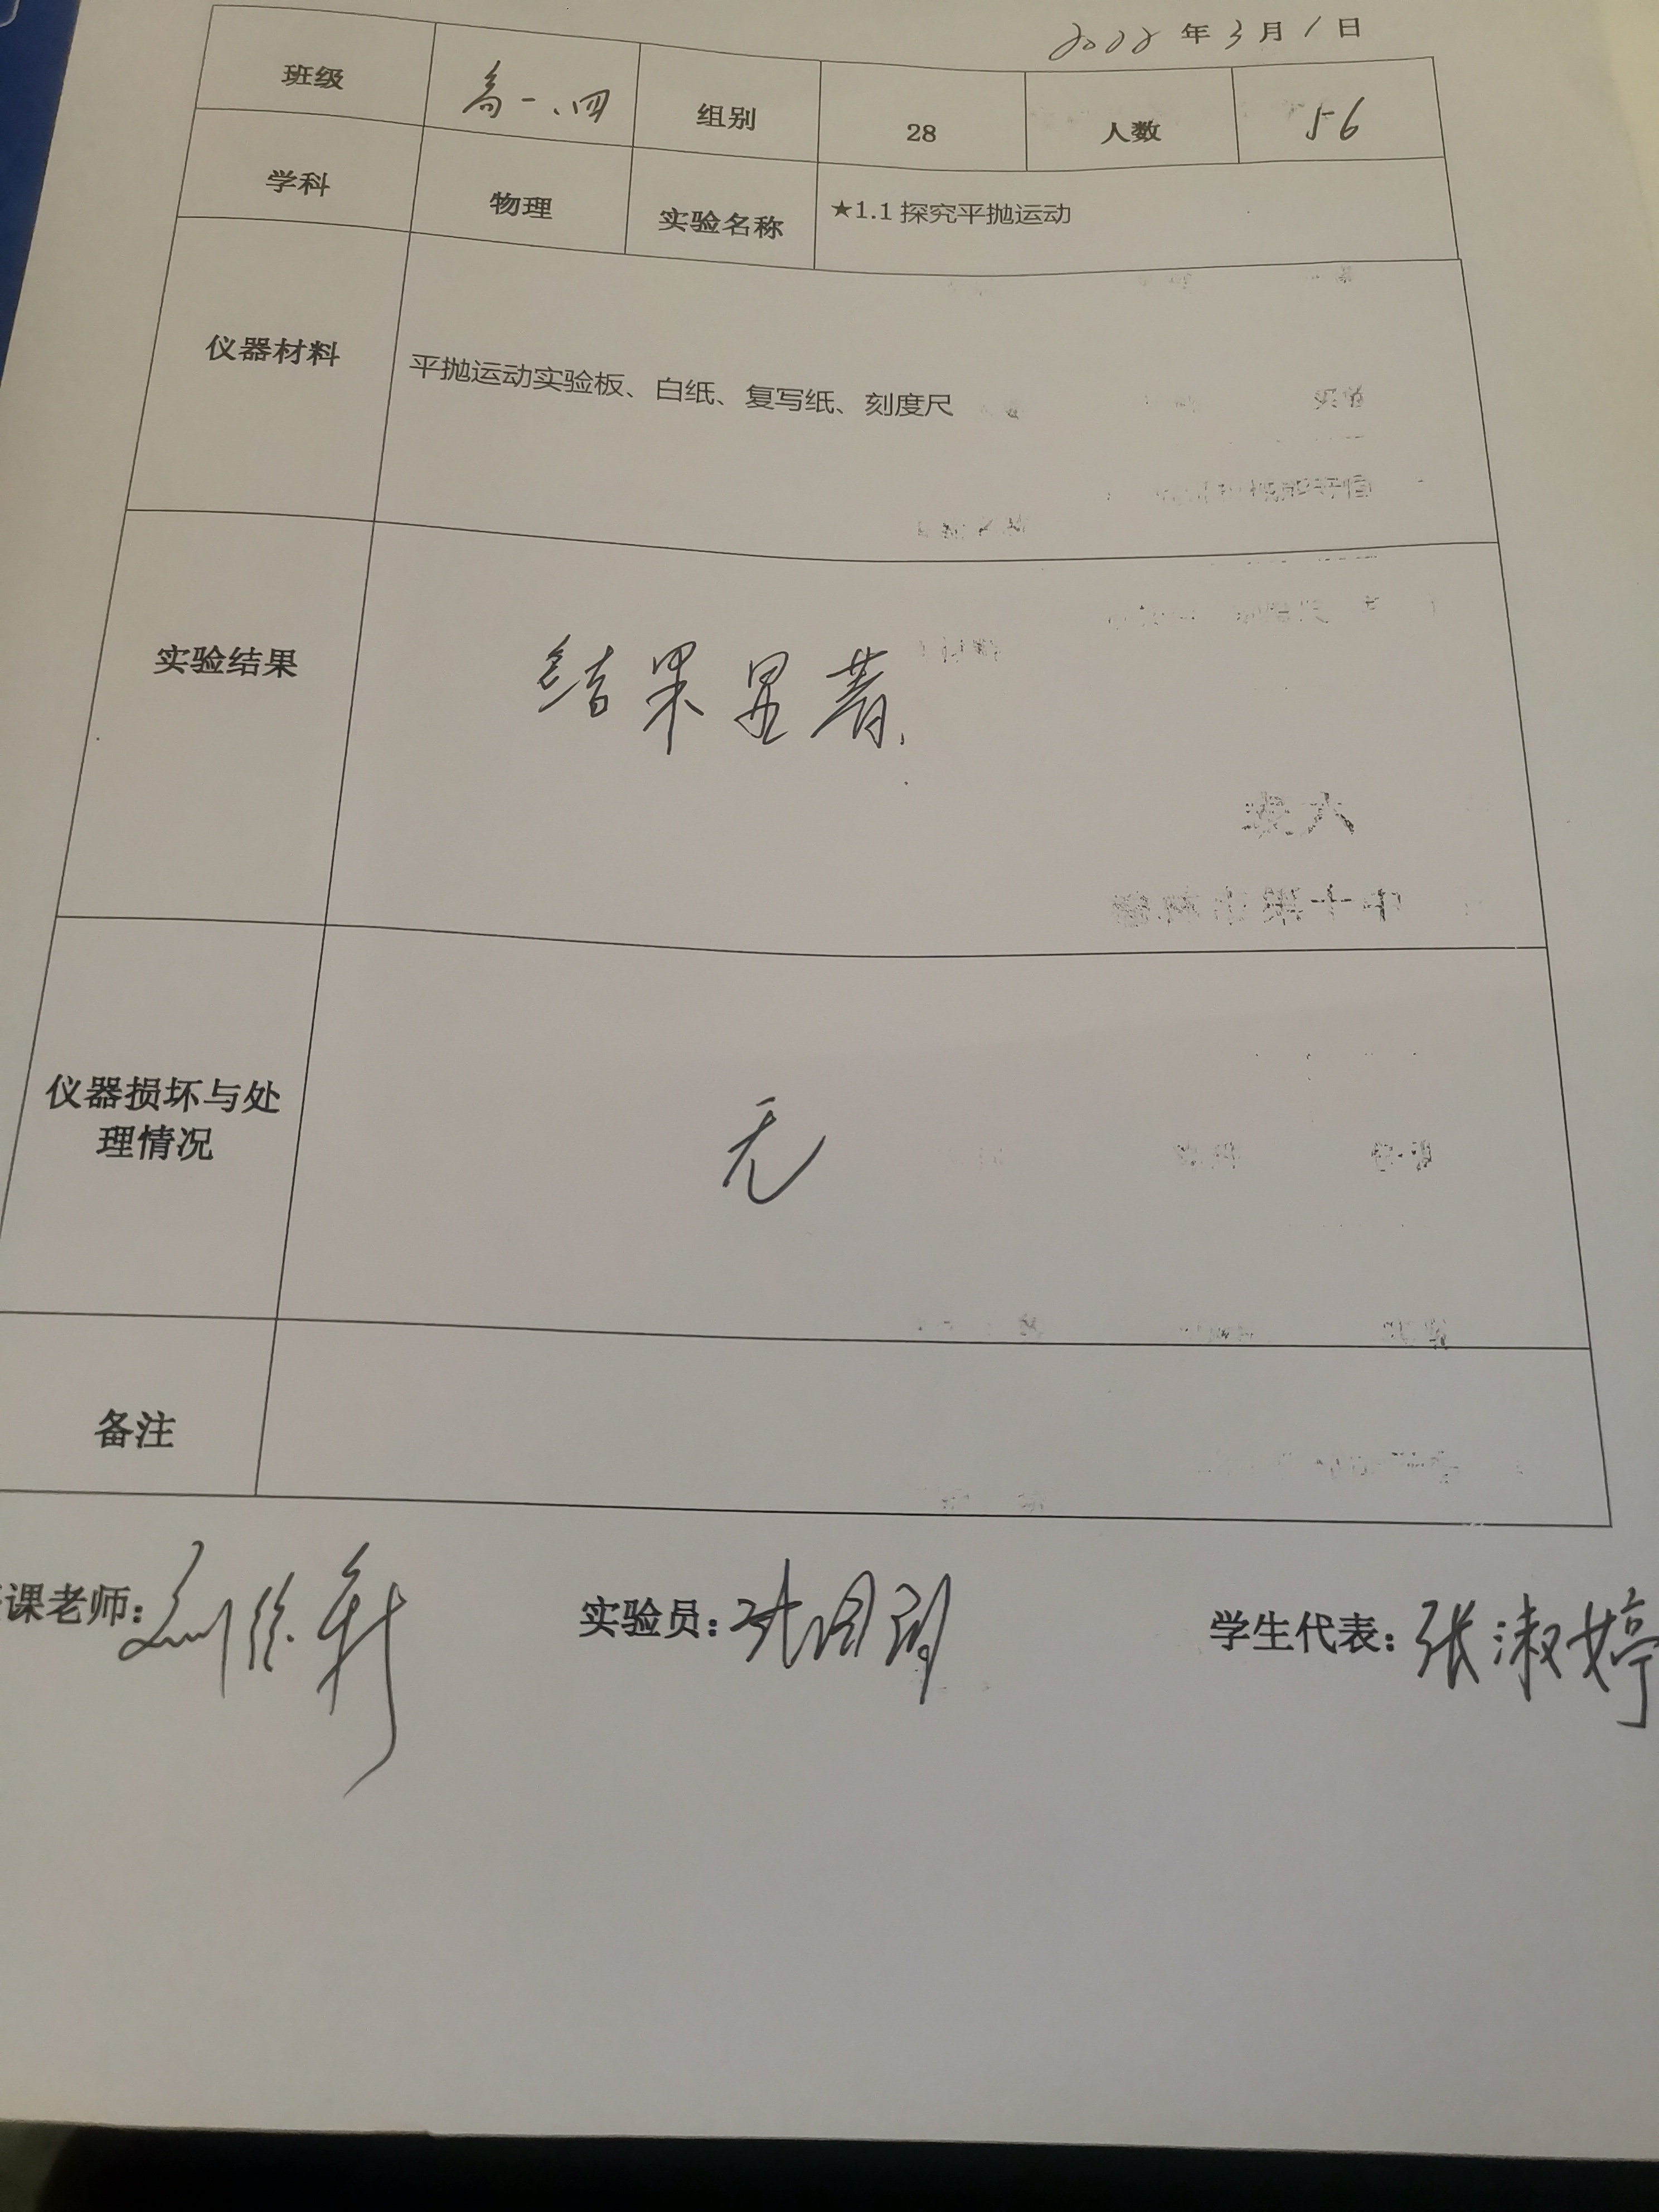 2022年3月1日
班级 高一.四 组别 28 人数 56
学科 物理 实验名称 ★1.1探究平抛运动
仪器材料 平抛运动实验板、白纸、复写纸、刻度尺
实验结果 结果显著.
仪器损坏与处
理情况 无
备注
课老师: 刘 实验员: 学生代表: 张淑婷